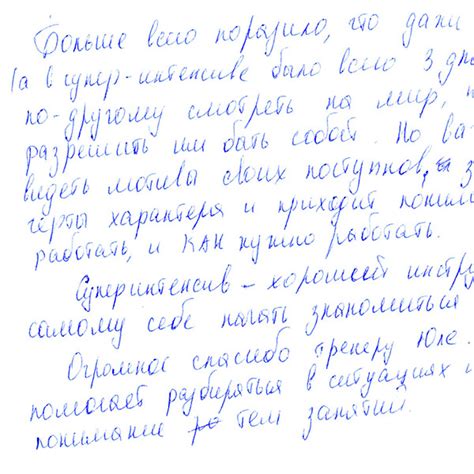 Больше всего поразило, что даже
(а в супер-интенсиве было всего 3 дн
по-другому смотреть на мир,
разрешить им быть собой. Но ва
видеть мотивы своих поступков, з
черты характера и приходит поним
работать, и КАК нужно работать.
Суперинтенсив – хороший инстру
самому себе начать знакомиться
Огромное спасибо тренеру Юле.
помогает разбираться в ситуациях и
понимание тем занятий.